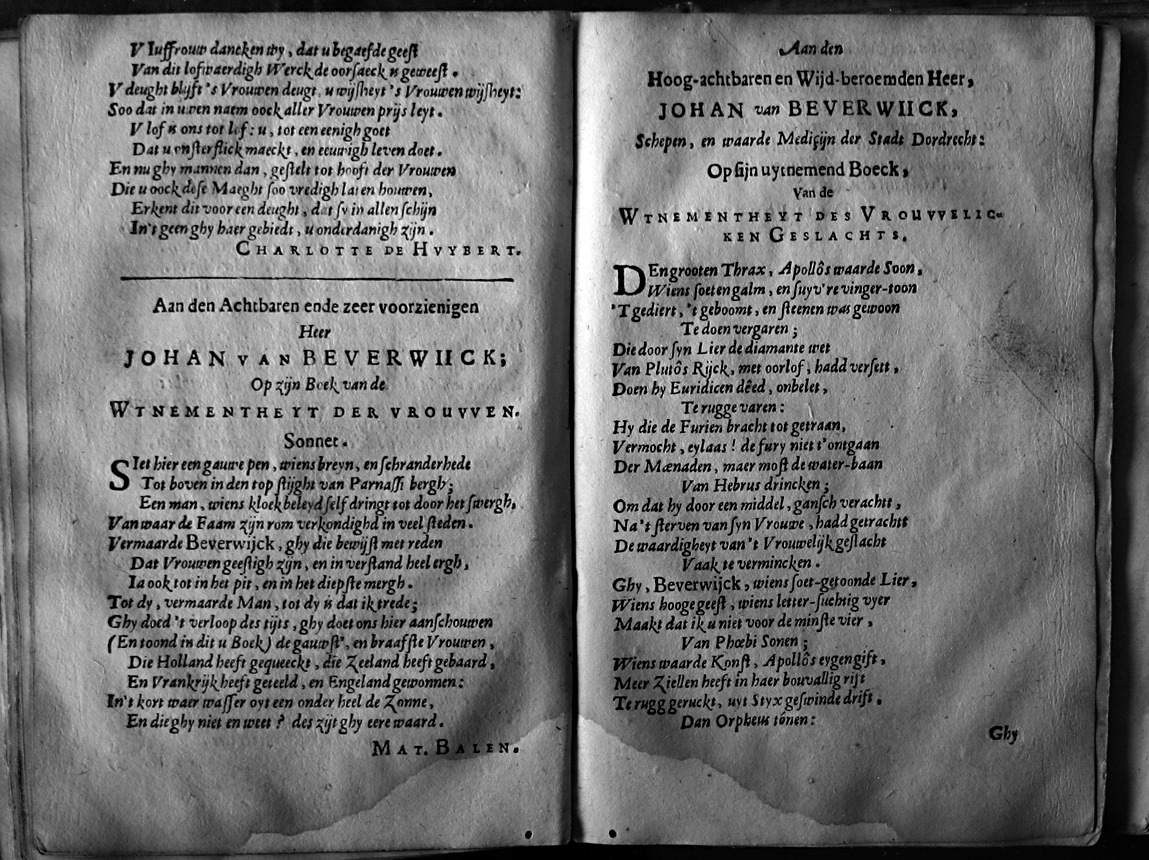 V Iuffrouw dancken wy, dat u begaefde geest
Van dit lofwaerdigh Werck de oorsaeck is geweest.
V deught blijft 's Vrouwen deugt, u wijsheyt 's Vrouwen wijsheyt:
Soo dat in uwen naem oock aller Vrouwen prijs leyt.
V lof is ons tot lof: u, tot een eenigh goet
Dat u onsterflick maeckt, en eeuwigh leven doet.
En nu ghy mannen dan, gestelt tot hooft der Vrouwen
Die u oock dese Maeght soo vredigh laten houwen,
Erkent dit voor een deught, dat sy in allen schijn
In't geen ghy haer gebiedt, u onderdanigh zijn.
CHARLOTTE DE HVYBERT.
Aan den Achtbaren ende zeer voorzienigen
Heer
JOHAN VAN BEVERWIICK;
Op zijn Boek van de
WTNEMENTHEYT DER VROUVVEN.
Sonnet.
SIet hier een gauwe pen, wiens breyn, en schranderhede
Tot boven in den top stijght van Parnassi bergh;
Een man, wiens kloek beleyd self dringt tot door het swergh,
Van waar de Faam zijn rom verkondighd in veel steden.
Vermaarde Beverwijck, ghy die bewijst met reden
Dat Vrouwen geestigh zijn, en in verstand heel ergh,
Ia ook tot in het pit, en in het diepste mergh.
Tot dy, vermaarde Man, tot dy is dat ik trede;
Ghy doed 't verloop des tijts, ghy doet ons hier aanschouwen
(En toond in dit u Boek) de gauwst', en braafste Vrouwen,
Die Holland heeft gequeeckt, die Zeeland heeft gebaard,
En Vrankrijk heeft geteeld, en Engeland gewonnen:
In't kort waer wasser oyt een onder heel de Zonne,
En die ghy niet en weet? des zijt ghy eere waard.
MAT. BALEN.
Aan den
Hoog-achtbaren en Wijd-beroemden Heer,
JOHAN van BEVERWIICK,
Schepen, en waarde Medicijn der Stadt Dordrecht:
Op sijn uytnemend Boeck,
Van de
WTNEMENTHEYT DES VROUVVELIC-
KEN GESLACHTS.
DEn grooten Thrax, Apollôs waarde Soon,
Wiens soeten galm, en suyv're vinger-toon
'T gediert, 't geboomt, en steenen was gewoon
Te doen vergaren;
Die door syn Lier de diamante wet
Van Plutôs Rijck, met oorlof, hadd versett,
Doen hy Euridicen dêed, onbelet,
Te rugge varen:
Hy die de Furien bracht tot getraan,
Vermocht, eylaas! de fury niet t'ontgaan
Der Mænaden, maer most de water-baan
Van Hebrus drincken;
Om dat hy door een middel, gansch verachtt,
Na't sterven van syn Vrouwe, hadd getrachtt
De waardigheyt van't Vrouwelijk geslacht
Vaak te vermincken.
Ghy, Beverwijck, wiens soet-getoonde Lier,
Wiens hooge geest, wiens letter-suchtig vyer
Maakt dat ik u niet voor de minste vier,
Van Phœbi Sonen;
Wiens waarde Konst, Apollôs eygen gift,
Meer Ziellen heeft in haer bouvallig rift
Te rugg geruckt, uyt Styx geswinde drift,
Dan Orpheus tónen:
Ghy